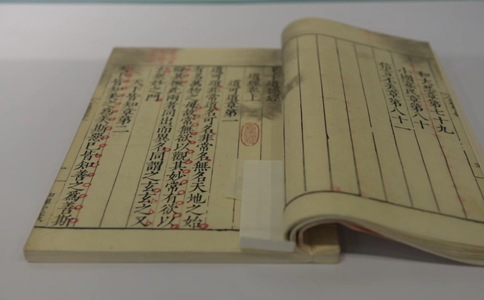 和大怨章第七十九
小國寡民章第八十
信言不美章第八十一
道經上
道可道章第一
道可道非常道名可名非常名無名天地之始
有名萬物之母故常無欲以觀其妙常有欲以
觀其徼此兩者同出而異名同謂之玄玄之又
玄衆妙之門
天下皆知章第二
天下皆知美之爲美斯惡已皆知善之爲善斯